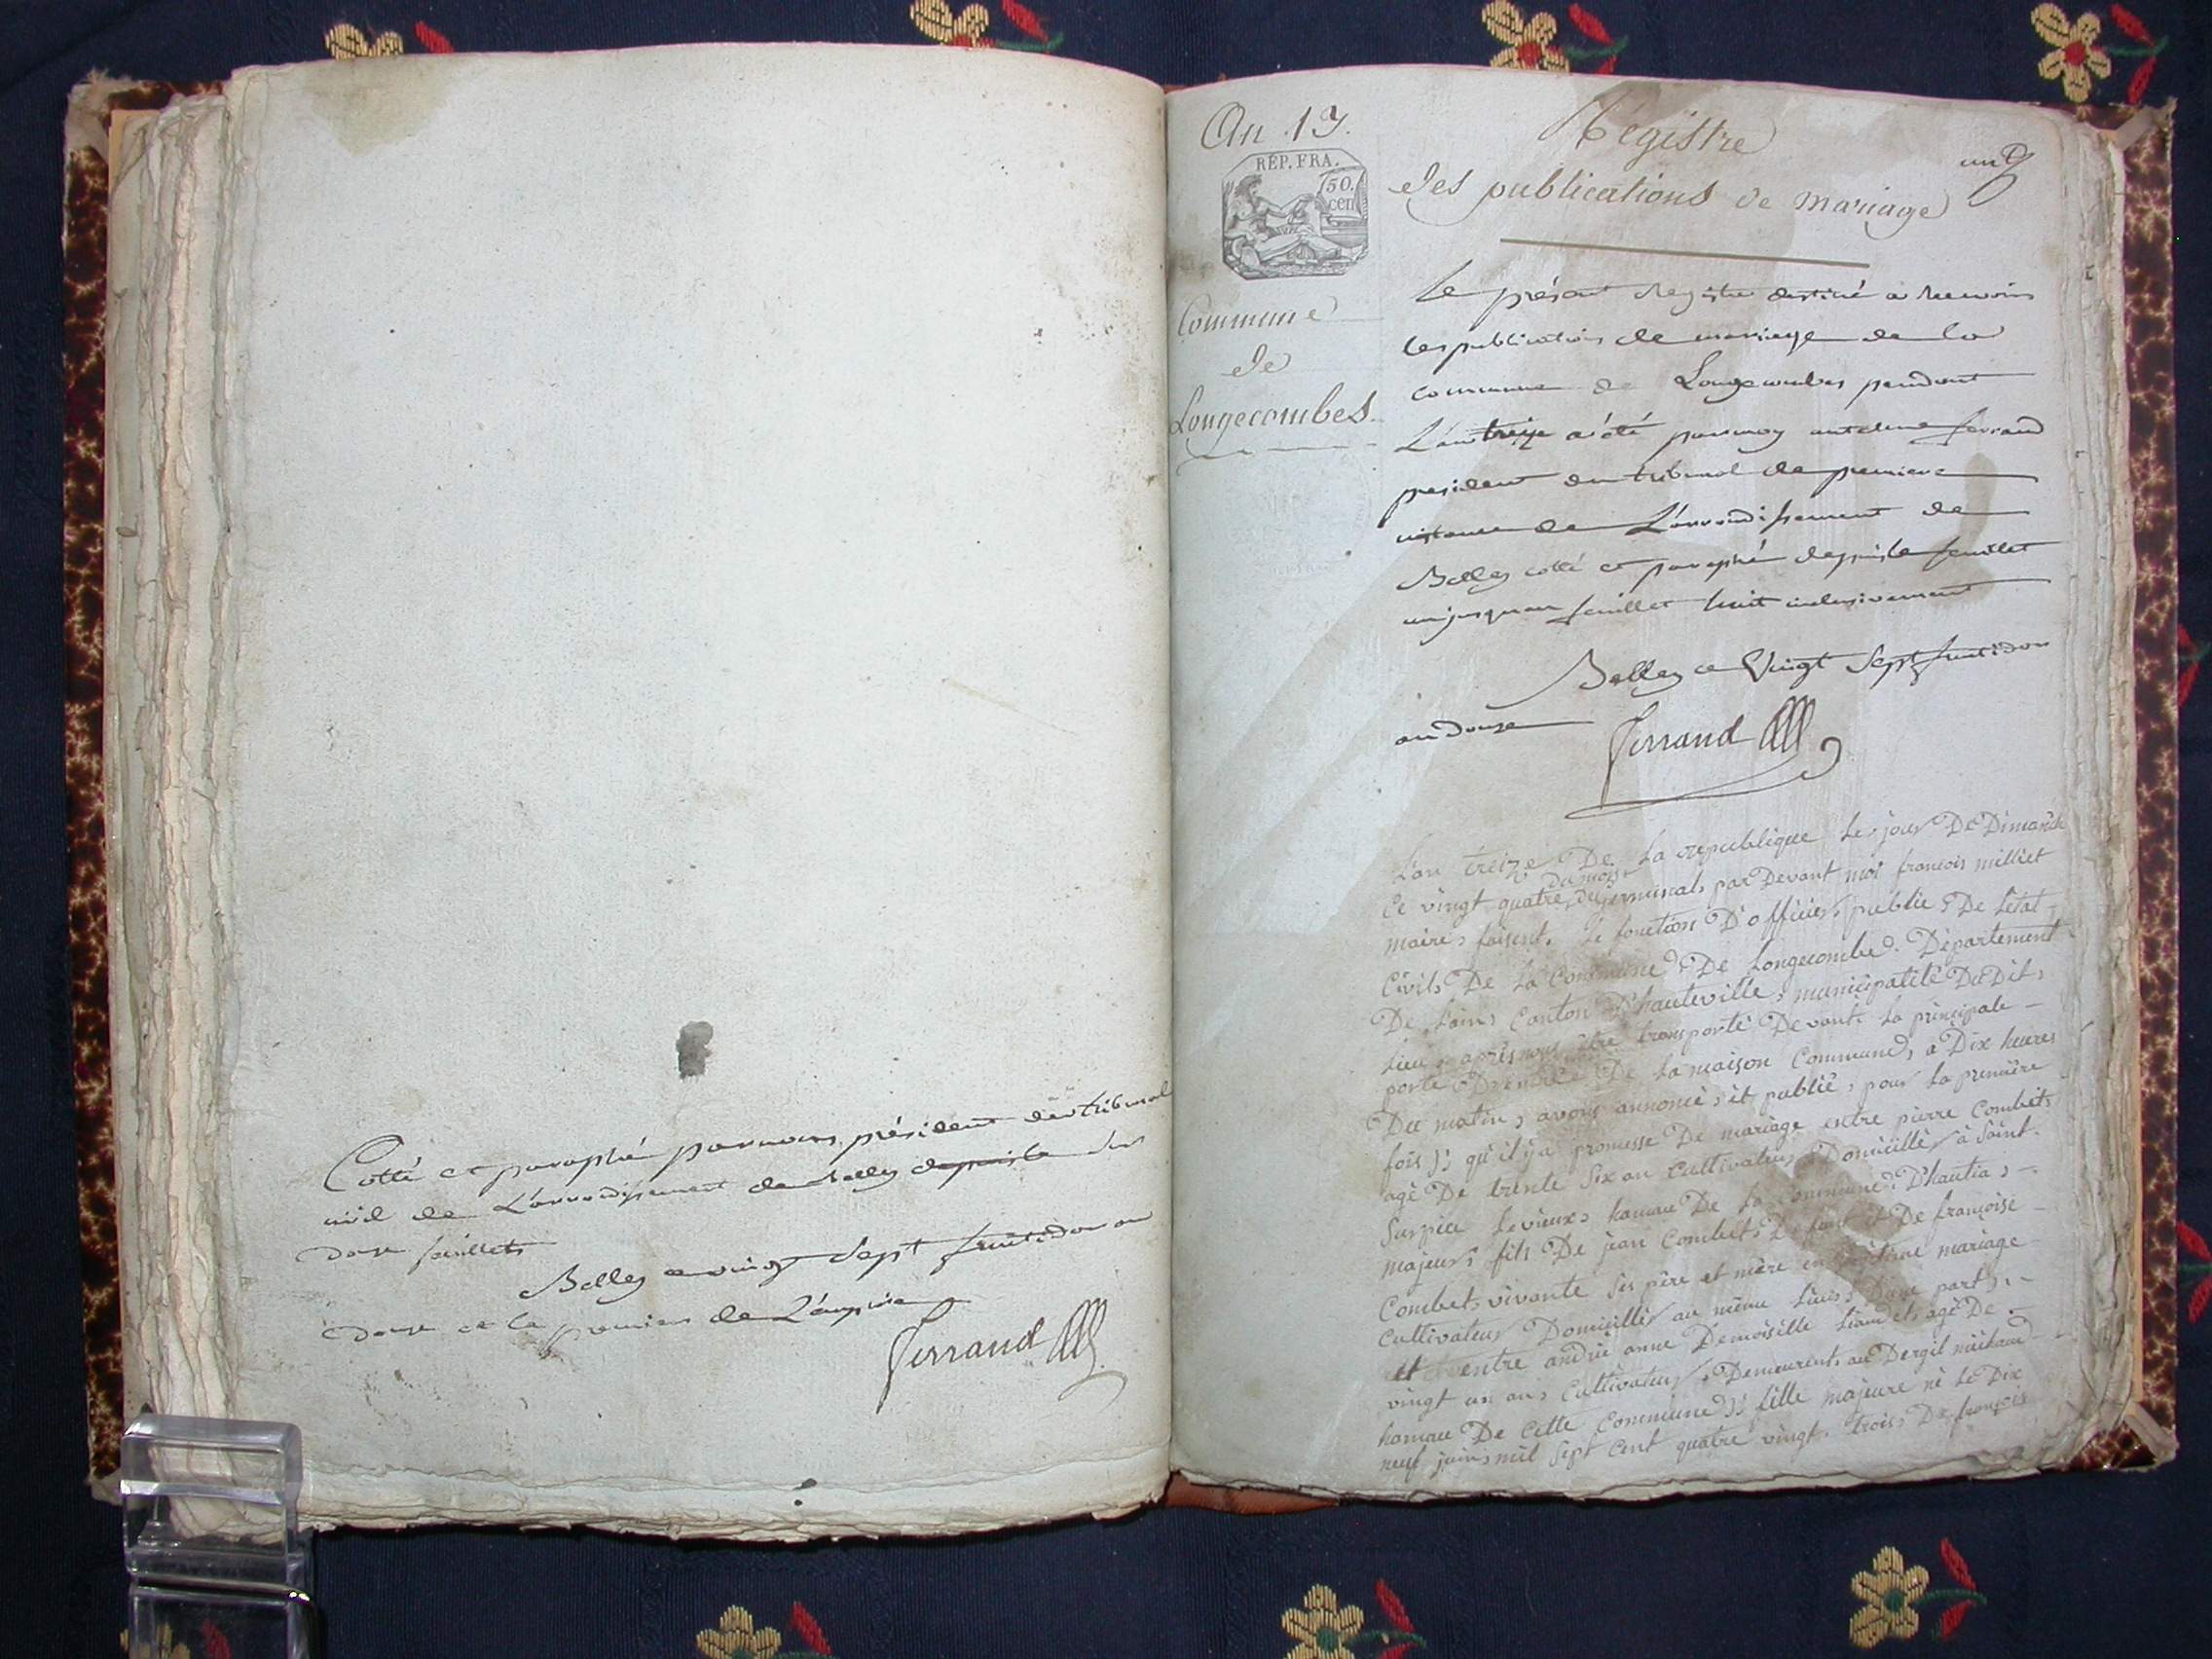 Cotté et paraphé par nous président du tribunal
civil de L'arrondissement de Belley depuis le
douze feuillets
Belley ce vingt sept fructidor an
douze et le premier de L'empire
Ferrand
An 13.
RÉP. FRA.
50.
cen
Commune
de
Longecombes.
Régistre
des publications de mariage
un
Le présent Registre destiné à recevoir
les publications de mariage de la
commune de Longecombes pendant
L'an treize a été par moy antelme ferrand
president du tribunal de premiere
instance de L'arrondissement de
Belley cotté et paraphé depuis le feuillet
un jusqu'au feuillet huit inclusivement
Belley ce Vingt Sept fructidor
an douze
Ferrand
L'an treize De La republique Le jour De Dimanche
Ce vingt quatre du mois de germinal par Devant moi francois milliet
maire faisent Le fonction D'officier public De L'état
Civil De La Commune De Longecombe Département
De Lain Canton D'hauteville municipalité DuDit
Lieu après nous être transporté Devant La principale
porte D'entrée De La maison Commune a Dix heures
Du matin avons annoncé et publié pour La première
fois qu'il y a promesse De mariage entre pierre Combet
agé De trente Six an Cultivateur Domicillié à Saint
Surpice Levieux hamau De La Commune D'hautia
majeur fils De jean Combet Défunt et De françoise
Combet vivante Ses père et mère en légitime mariage
Cultivateur Domicillié au même Lieu D'une part
et entre andrée anne Demoiselle Liaudet agé De
vingt un ans Cultivateur Demeurent au Dergil michaud
hamau De Cette Commune fille majeure né Le Dix
neuf juin mil Sept Cent quatre vingt trois De françois